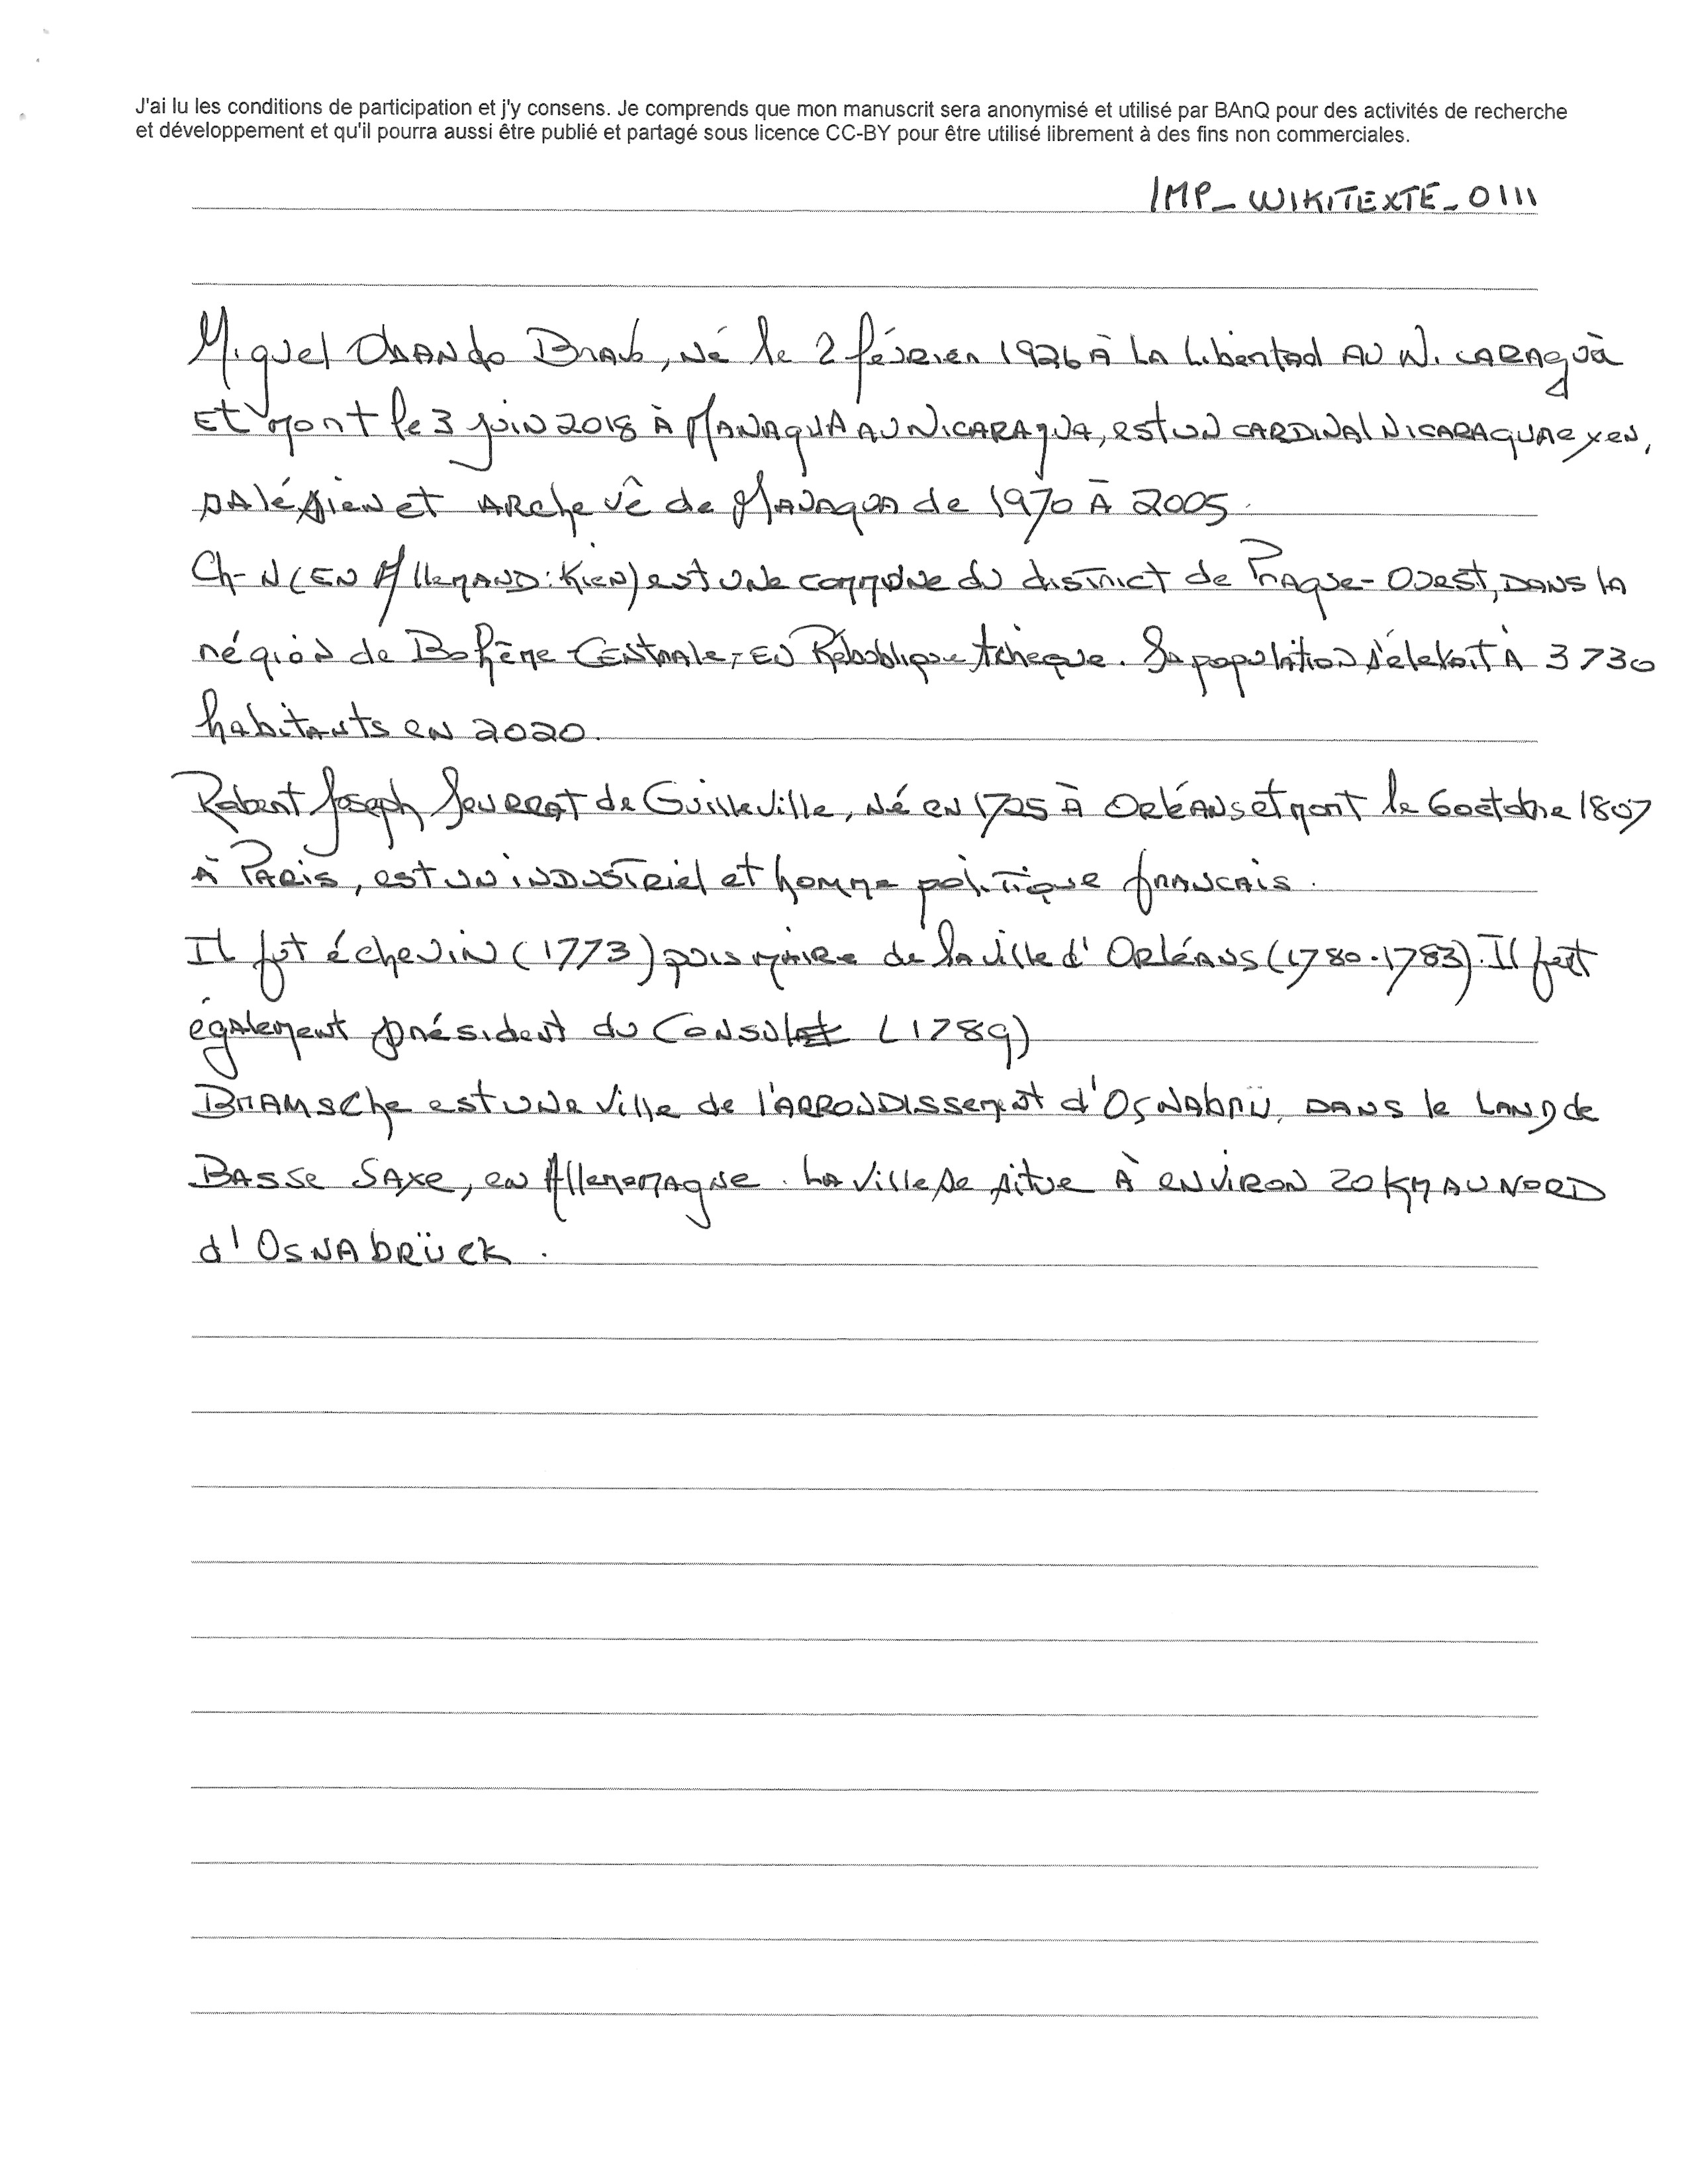 J'ai lu les conditions de participation et j'y consens. Je comprends que mon manuscrit sera anonymisé et utilisé par BAnQ pour des activités de recherche
et développement et qu'il pourra aussi être publié et partagé sous licence CC-BY pour être utilisé librement à des fins non commerciales.
IMP_WIKITEXTE_0111
Miguel Obando Bravo, né le 2 février 1926 à La Libertad au Nicaraguà
et mort le 3 juin 2018 à Managua au Nicaragua, est un cardinal nicaraguayen,
salésien et archevê de Managua de 1970 à 2005.
Ch-n (en Allemand : Kien) est une commune du district de Prague-Ouest, dans la
région de Bohême-Centrale, en République tchèque. Sa population s'élevait à 3 730
habitants en 2020.
Robert Joseph Jeurrat de Guilleville, né en 1725 à Orléans et mort le 6 octobre 1807
à Paris, est un industriel et homme politique francais.
Il fut échevin (1773) puis maire de la ville d'Orléans (1780-1783). Il fut
également président du Consulat (1789)
Bramsche est une ville de l'arrondissement d'Osnabrü, dans le Land de
Basse Saxe, en Allememagne. La ville se situe à environ 20 km au nord
d'Osnabrück.